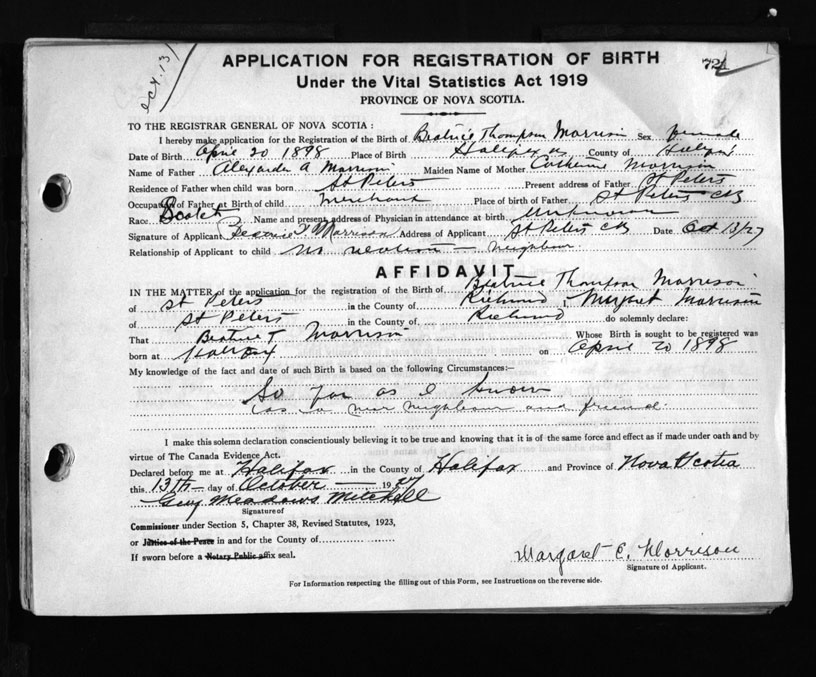 Oct. 13/ 721
APPLICATION FOR REGISTRATION OF BIRTH
Under the Vital Statistics Act 1919
PROVINCE OF NOVA SCOTIA.
TO THE REGISTRAR GENERAL OF NOVA SCOTIA:
I hereby make application for the Registration of the Birth of Beatrice Thompson Morrison Sex female
Date of Birth April 20 1898 Place of Birth Halifax County of Halifax
Name of Father Alexander A Morrison Maiden Name of Mother Catherine Morrison
Residence of Father when child was born St Peters Present address of Father St Peters
Occupation of Father at Birth of child merchant Place of birth of Father St Peters CB
Race Scotch Name and present address of Physician in attendance at birth Unknown
Signature of Applicant Beatrice T Morrison Address of Applicant St Peters CB Date Oct 13/27
Relationship of Applicant to child no relation — neighbour
AFFIDAVIT
IN THE MATTER of the application for the registration of the Birth of Beatrice Thompson Morrison
of St Peters in the County of Richmond Margaret Morrison
of St Peters in the County of Richmond do solemnly declare:
That Beatrice T Morrison Whose Birth is sought to be registered was
born at Halifax on April 20 1898
My knowledge of the fact and date of such Birth is based on the following Circumstances:—
So far as I know
as a near neighbour and friend.
I make this solemn declaration conscientiously believing it to be true and knowing that it is of the same force and effect as if made under oath and by
virtue of The Canada Evidence Act.
Declared before me at Halifax in the County of Halifax and Province of Nova Scotia
this 13th day of October 1927
Guy Meadows Mitchell
Signature of
Commissioner under Section 5, Chapter 38, Revised Statutes, 1923,
or Justice of the Peace in and for the County of
If sworn before a Notary Public affix seal.
Margaret E. Morrison
Signature of Applicant.
For Information respecting the filling out of this Form, see Instructions on the reverse side.